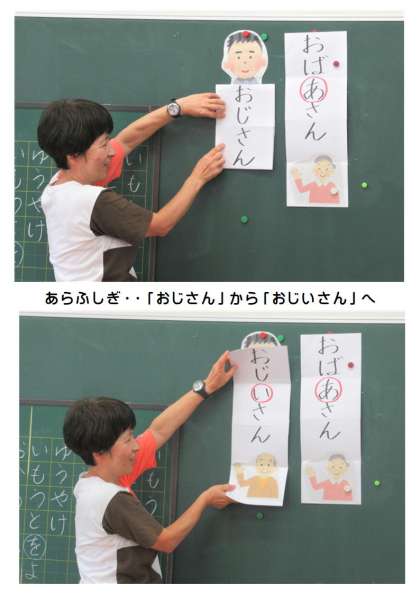 おばあさん
おじさん
いも
ゆうやけ
あらふしぎ・・「おじさん」から「おじいさん」へ
おばあさん
おじいさん
ゆうやけ
いもうとをよ